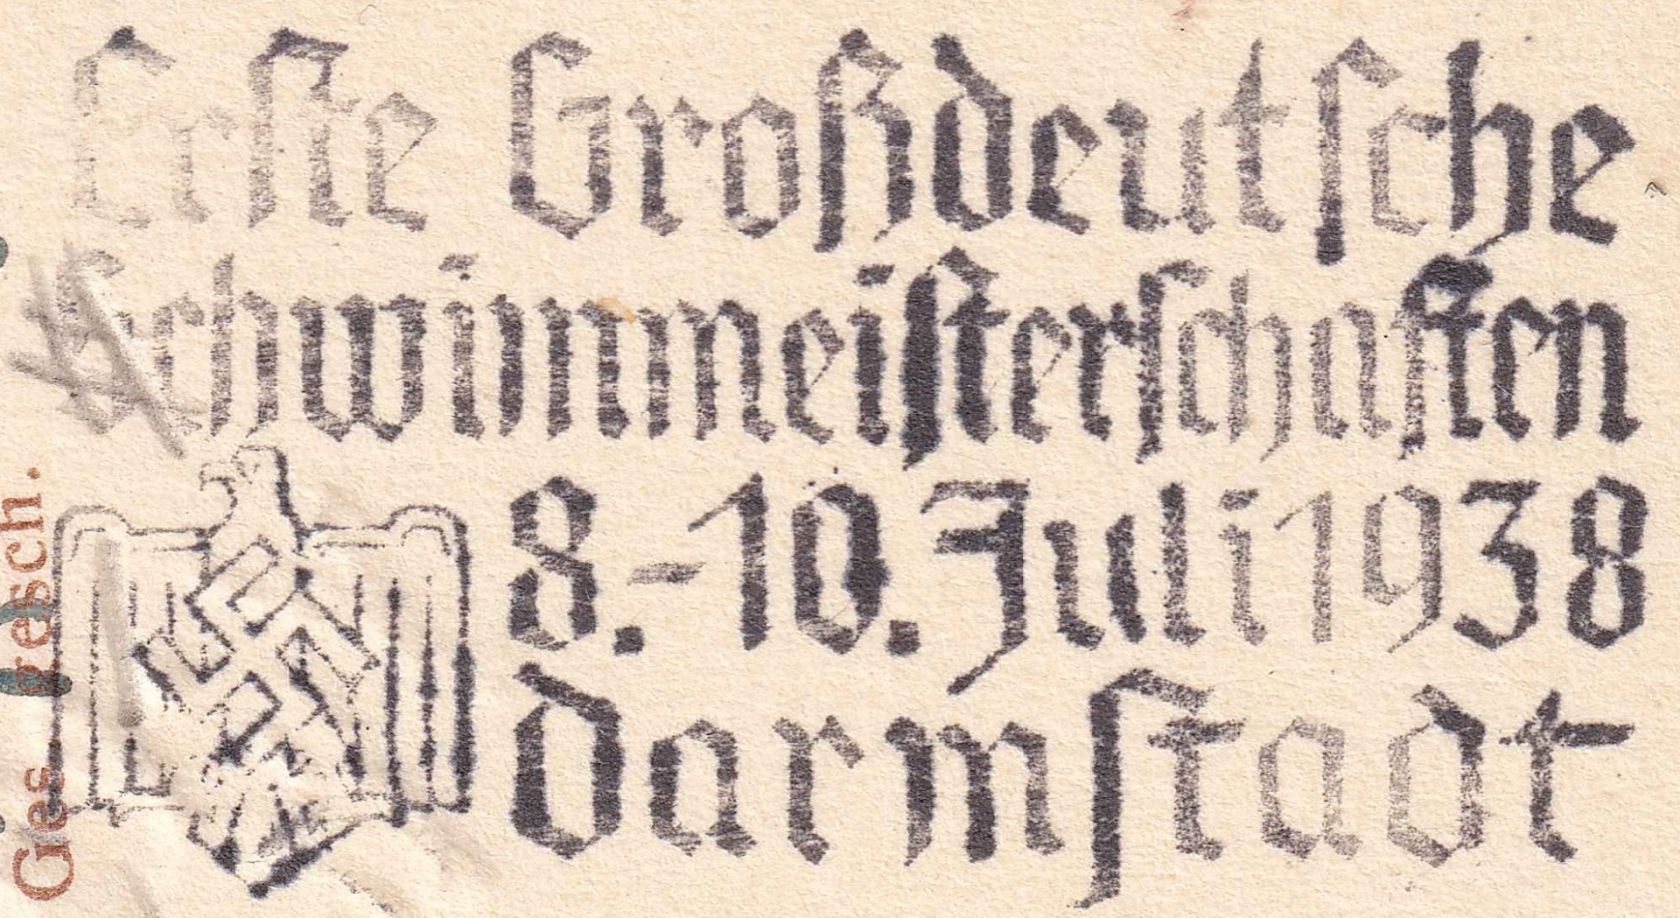 Erste Großdeutsche
Schwimmeisterschaften
8.-10. Juli 1938
Darmstadt
Ges. gesch.